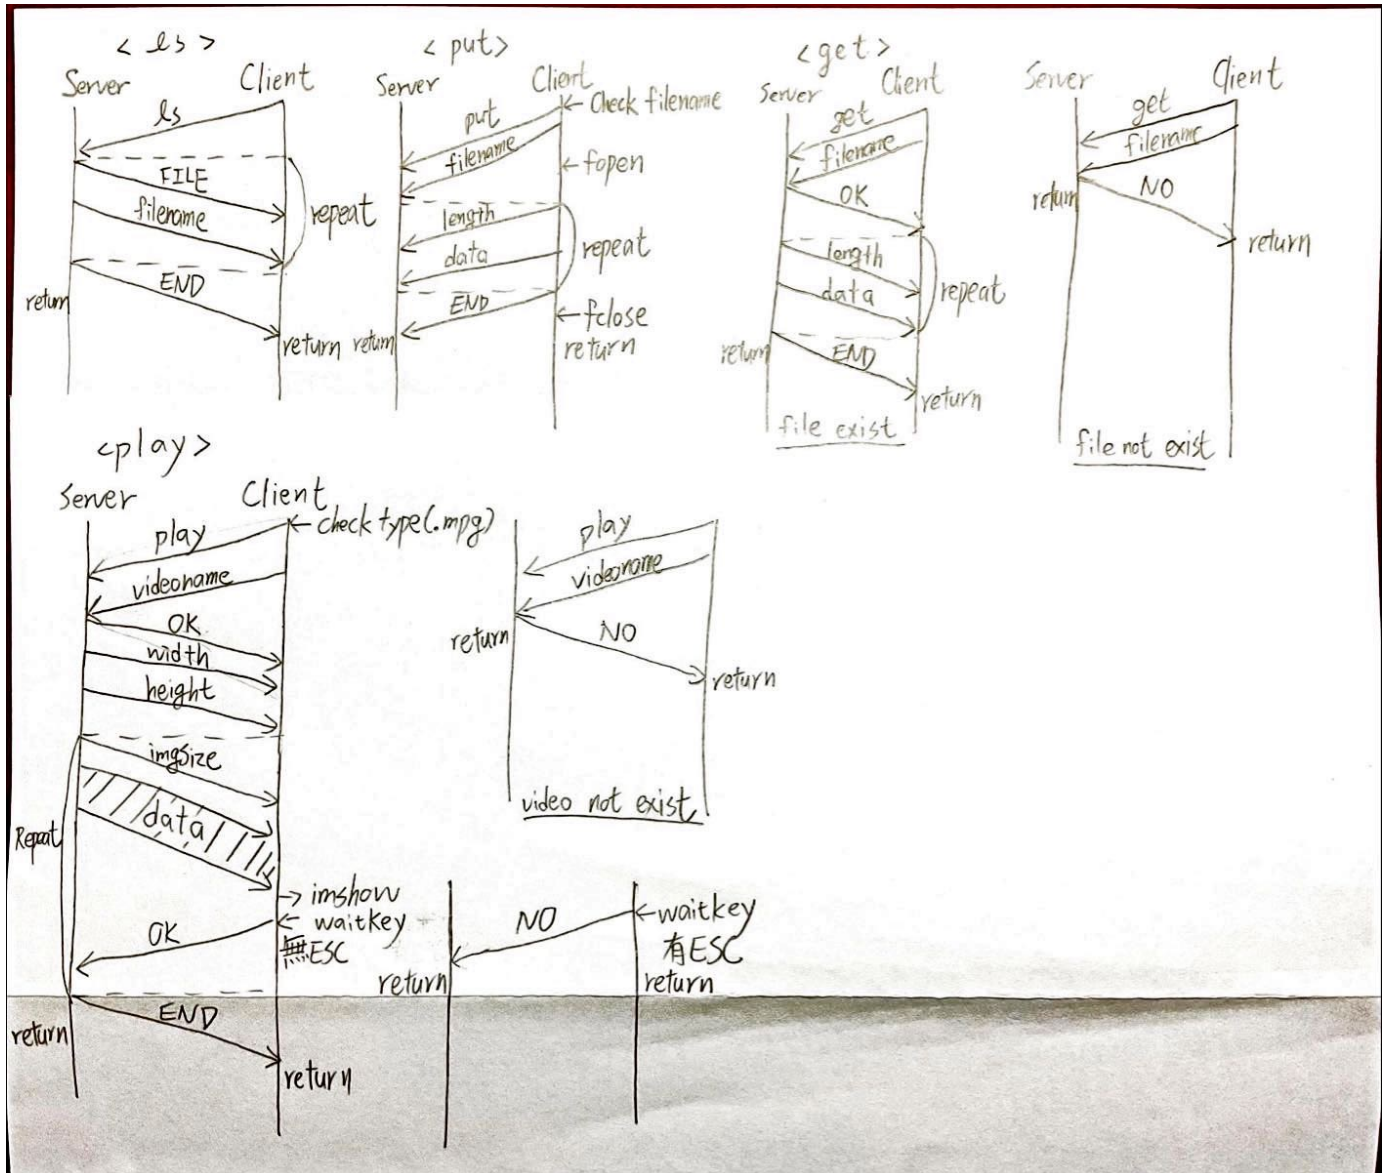 <ls>
Server Client
ls
FILE
filename
repeat
END
return
return
<put>
Server Client
← Check filename
put
filename
← fopen
length
data
repeat
END
← fclose
return
return
<get>
Server Client
get
filename
OK
length
data
repeat
END
return
return
file exist
Server Client
get
filename
NO
return
return
file not exist
<play>
Server Client
← check type(.mpg)
play
videoname
OK
width
height
imgSize
data
Repeat
→ imshow
← waitkey
無ESC
OK
END
return
return
play
videoname
NO
return
return
video not exist
← waitkey
有ESC
NO
return
return